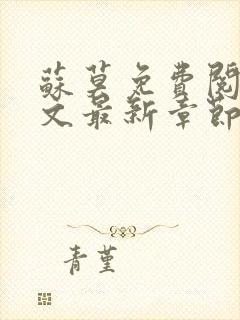 蘇莫免費閱
文最新章節
青堇